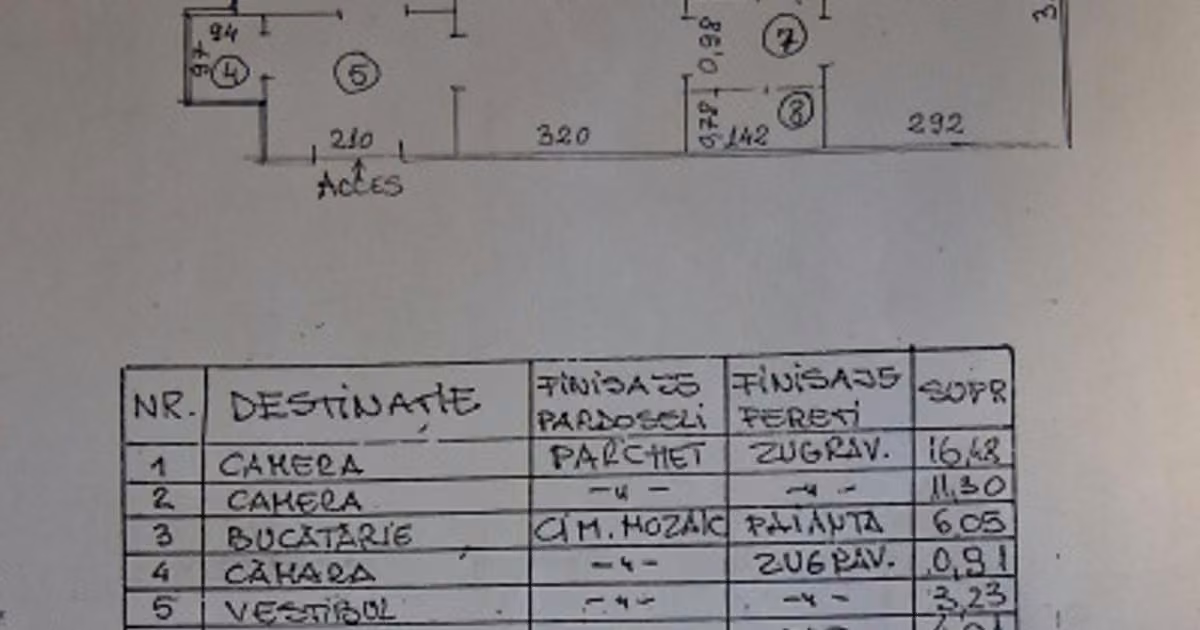 94
97
4
5
0,98
7
3
8
210
320
142
292
ACCES
NR. DESTINAȚIE FINISAJE PARDOSELI FINISAJE PEREȚI SUPR
1 CAMERA PARCHET ZUGRAV. 16,48
2 CAMERA -〃- -〃- 11,30
3 BUCĂTĂRIE CIM. MOZAIC FAIANȚĂ 6,05
4 CĂMARA -〃- ZUGRAV. 0,91
5 VESTIBUL -〃- -〃- 3,23